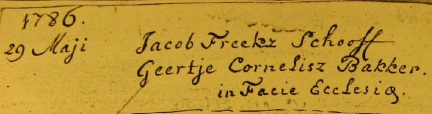 1786.
29 Maji Jacob Freekz Schooff
Geertje Cornelisz Bakker.
in Facie Ecclesiæ.